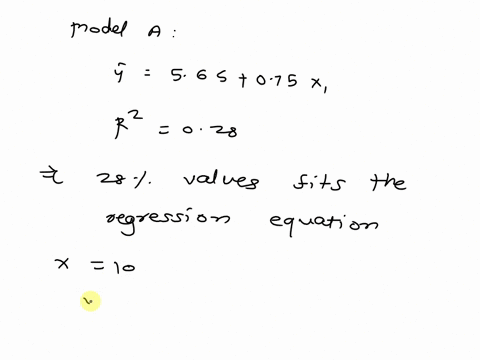 Model A :
ŷ = 5.65 + 0.75 x₁
R² = 0.28
⇒ 28 % values fits the
regression equation
x = 10